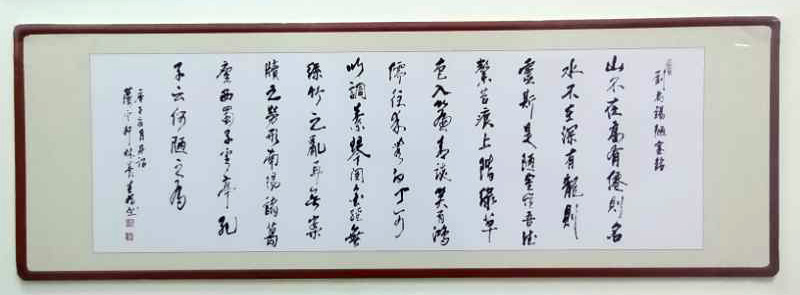 劉禹錫陋室銘
山不在高有僊則名
水不在深有龍則
靈斯是陋室惟吾德
馨苔痕上階綠草
色入簾青談笑有鴻
儒往來無白丁可
以調素琴閱金經無
絲竹之亂耳無案
牘之勞形南陽諸葛
廬西蜀子雲亭孔
子云何陋之有
庚子